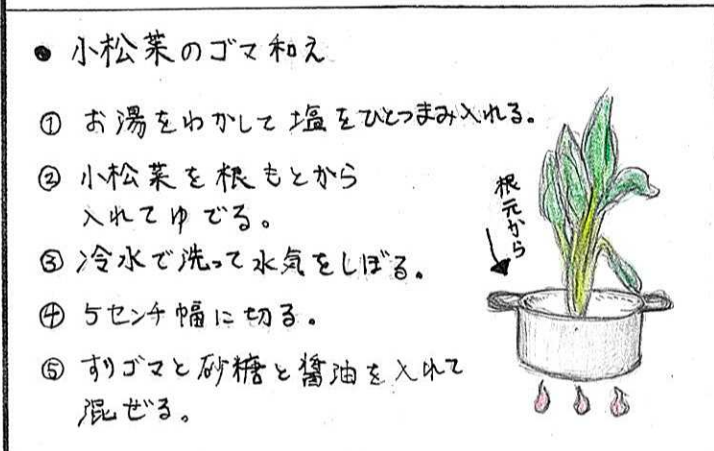 ● 小松菜のゴマ和え
① お湯をわかして塩をひとつまみ入れる。
② 小松菜を根もとから
入れてゆでる。
③ 冷水で洗って水気をしぼる。
④ 5センチ幅に切る。
⑤ すりゴマと砂糖と醤油を入れて
混ぜる。
根元から